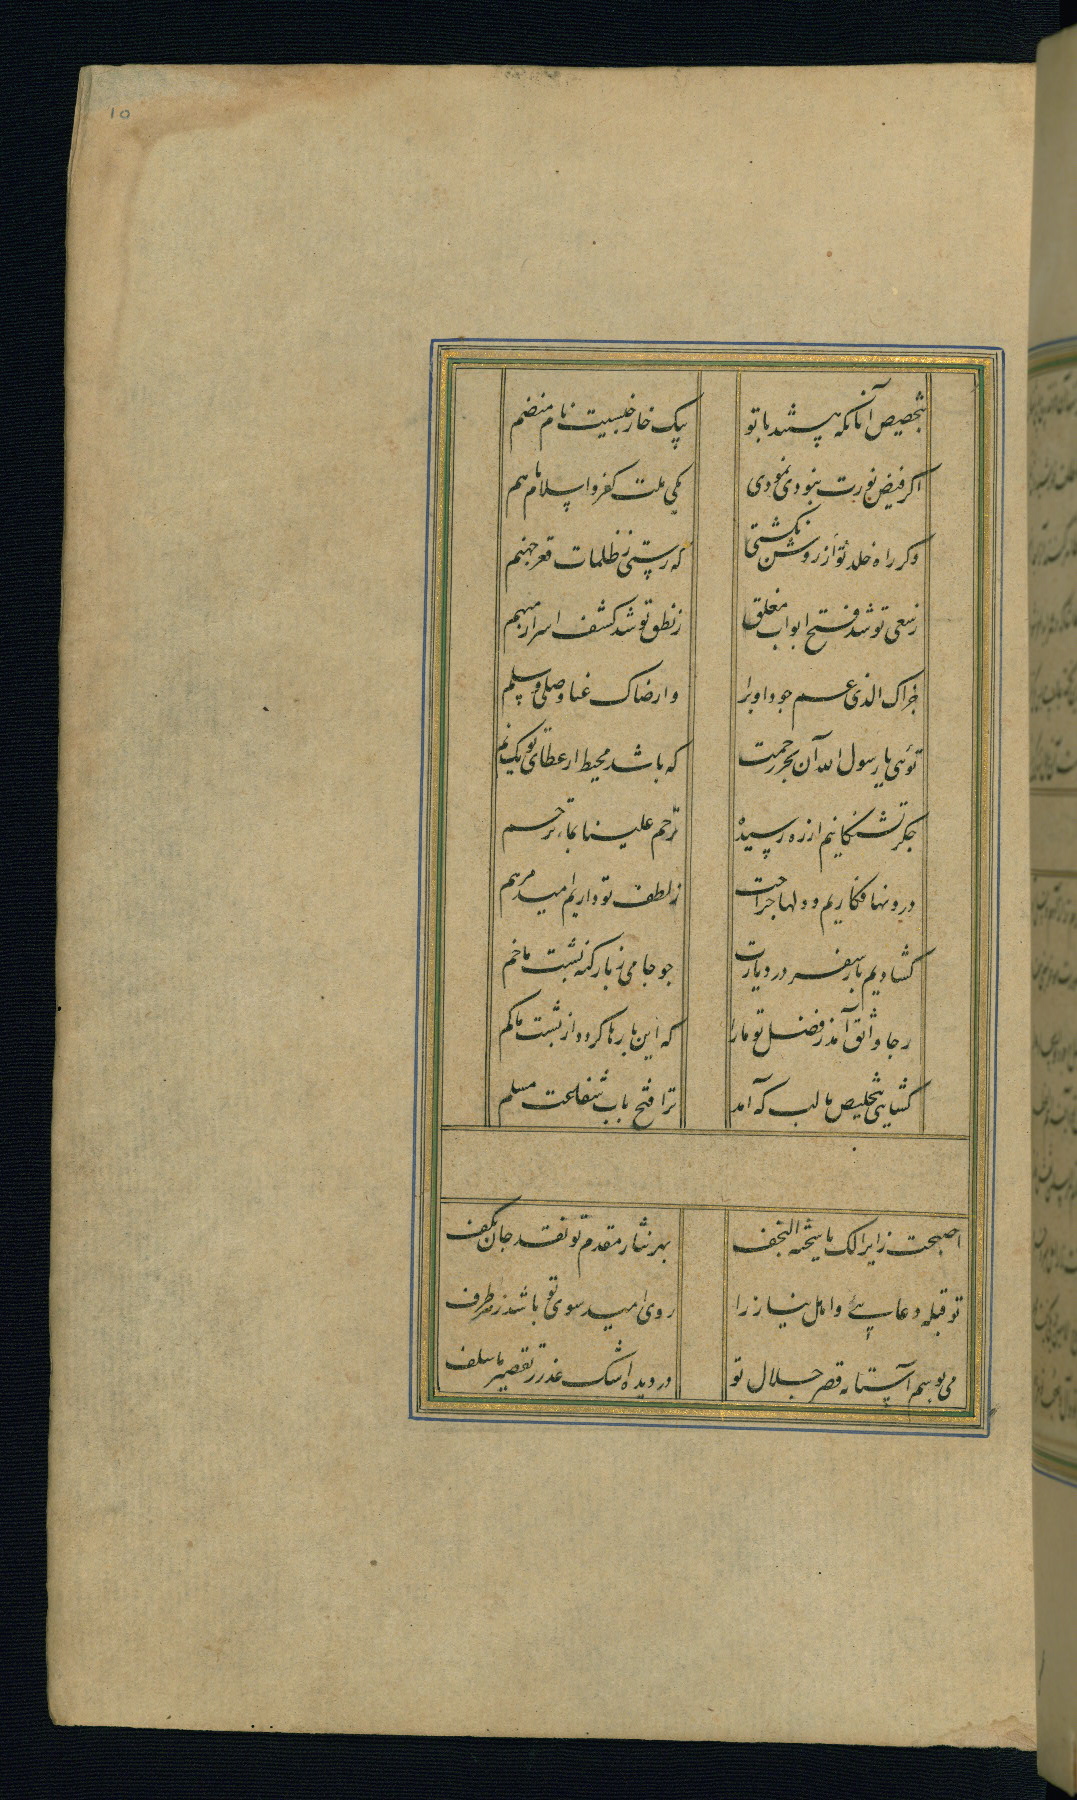 10
بتخصیص آنانکه هستند با تو
بیک خانه خسبیت نام منضم
اکر فیض نورت نبودی نمودی
یکی ملت کفر و اسلام باهم
وکر راه خلد تو از رو شن نکشتی
که رستی ز ظلمات قعر جهنم
ز سعی تو شد فتح ابواب مغلق
ز نطق تو شد کشف اسرار مبهم
جزاک الذی عم جودا و برا
و ارضاک عنا و صلی و سلم
توئی یا رسول الله آن بحر رحمت
که باشد محیط از عطای تو یک نم
جکر تشنکانیم از ره رسیده
ترحم علینا بماء ترحم
درونها فکاریم و دلها جراحت
ز لطف تو داریم امید مرهم
کشادیم بار سفر در دیارت
جو جامی ز بار کنه پشت ما خم
رجا واثق آمد ز فضل تو ما را
که این بارها کردد از پشت ما کم
کشایی بتخلیص ما لب که آمد
ترا فتح باب شفاعت مسلم
اصبحت زایرا لک یا شحنة النجف
بهر نثار مقدم تو نقد جان بکف
تو قبله دعایی و اهل نیاز را
روی امید سوی تو باشد ز هر طرف
می بوسم آستانه قصر جلال تو
در دیده اشک عذر ز تقصیر ما سلف